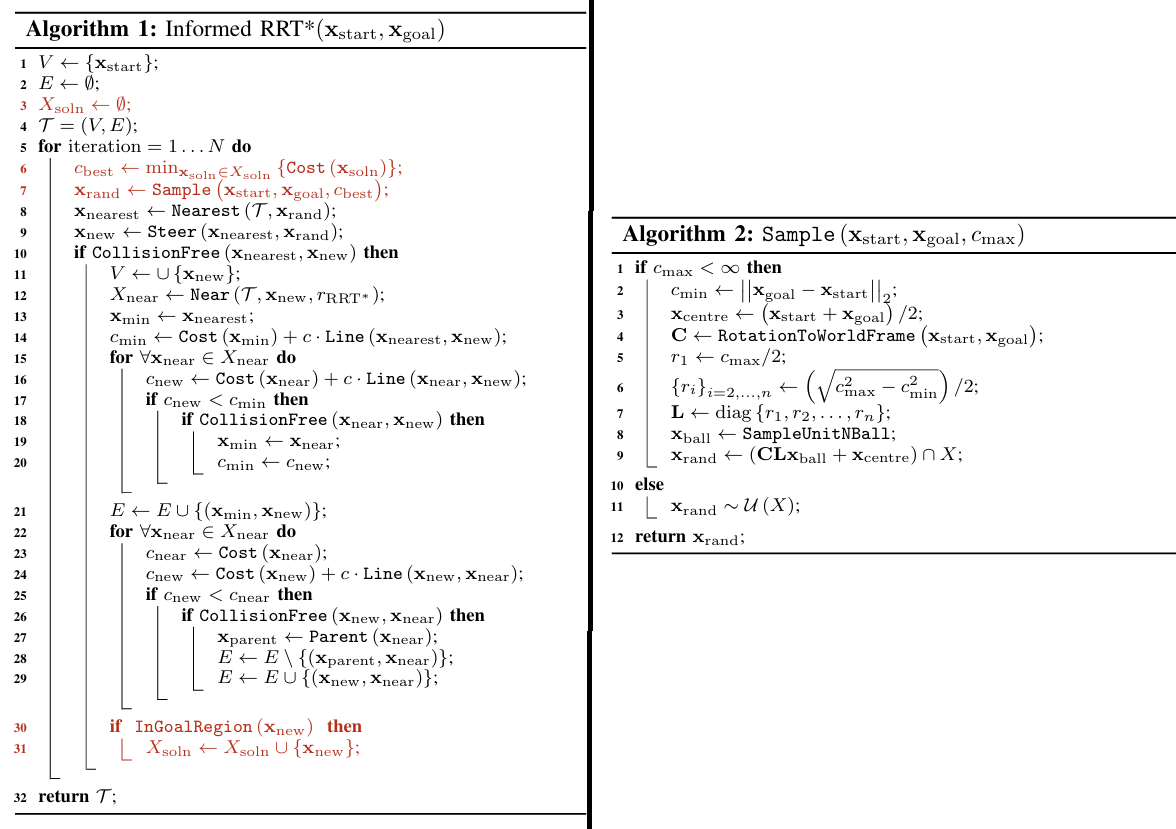 Algorithm 1: Informed RRT*(x_start, x_goal)
1 V ← {x_start};
2 E ← ∅;
3 X_soln ← ∅;
4 𝒯 = (V, E);
5 for iteration = 1 … N do
6 c_best ← min_{x_soln ∈ X_soln} {Cost (x_soln)};
7 x_rand ← Sample (x_start, x_goal, c_best);
8 x_nearest ← Nearest (𝒯, x_rand);
9 x_new ← Steer (x_nearest, x_rand);
10 if CollisionFree (x_nearest, x_new) then
11 V ← ∪ {x_new};
12 X_near ← Near (𝒯, x_new, r_RRT*);
13 x_min ← x_nearest;
14 c_min ← Cost (x_min) + c · Line (x_nearest, x_new);
15 for ∀x_near ∈ X_near do
16 c_new ← Cost (x_near) + c · Line (x_near, x_new);
17 if c_new < c_min then
18 if CollisionFree (x_near, x_new) then
19 x_min ← x_near;
20 c_min ← c_new;
21 E ← E ∪ {(x_min, x_new)};
22 for ∀x_near ∈ X_near do
23 c_near ← Cost (x_near);
24 c_new ← Cost (x_new) + c · Line (x_new, x_near);
25 if c_new < c_near then
26 if CollisionFree (x_new, x_near) then
27 x_parent ← Parent (x_near);
28 E ← E \ {(x_parent, x_near)};
29 E ← E ∪ {(x_new, x_near)};
30 if InGoalRegion (x_new) then
31 X_soln ← X_soln ∪ {x_new};
32 return 𝒯;
Algorithm 2: Sample (x_start, x_goal, c_max)
1 if c_max < ∞ then
2 c_min ← ||x_goal − x_start||_2;
3 x_centre ← (x_start + x_goal) /2;
4 C ← RotationToWorldFrame (x_start, x_goal);
5 r_1 ← c_max/2;
6 {r_i}_{i=2,…,n} ← (√(c_max^2 − c_min^2)) /2;
7 L ← diag {r_1, r_2, …, r_n};
8 x_ball ← SampleUnitNBall;
9 x_rand ← (CLx_ball + x_centre) ∩ X;
10 else
11 x_rand ∼ 𝒰 (X);
12 return x_rand;